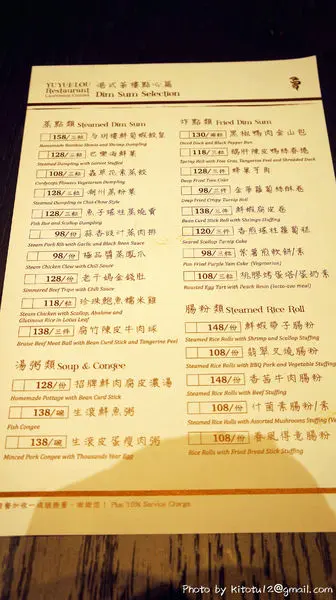 YUYUELOU
Restaurant
港式茶樓點心篇
Dim Sum Selection
蒸點類 Steamed Dim Sum
158/三粒
Homemade Bamboo Shoots and Shrimp Dumplings
128/三粒
Steamed Dumpling with Garnet Stuffed
108/三粒 蟲草花素蒸餃
Cordyceps Flowers Vegetarian Dumpling
128/三粒 潮州蒸粉菓
Steamed Dumpling in Chiu-Chow Style
128/三粒 魚子瑤柱蒸燒賣
Fish Roe and Scallop Dumpling
98/份 蒜香豉汁蒸肉排
Steam Pork Rib with Garlic and Black Bean Sauce
98/份 極品醬蒸鳳爪
Steam Chicken Claw with Chili Sauce
128/份 老干媽金錢肚
Simmered Beef Tripe with Chili Sauce
118/粒 珍珠鮑魚糯米雞
Steam Chicken with Scallop, Abalone and
Glutinous Rice in Lotus Leaf
138/三件 腐竹陳皮牛肉球
Braise Beef Meat Ball with Bean Curd Stick and Tangerine Peel
湯粥類 Soup & Congee
128/份 招牌鮮肉腐皮濃湯
Homemade Pottage with Bean Curd Stick
138/碗 生滾鮮魚粥
Fish Congee
138/碗 生滾皮蛋瘦肉粥
Minced Pork Congee with Thousands Year Egg
炸點類 Fried Dim Sum
130/兩粒 黑椒鴨肉金山包
Diced Duck and Black Pepper Bun
118/三件 鵝肝陳皮鴨絲春捲
Spring Roll with Foie Gras, Tangerine Peel and Shredded Duck
128/三件 蜂巢芋角
Deep Fried Taro Cake
98/三件 金華蘿蔔絲酥卷
Deep Fried Crispy Turnip Roll
138/三件 鮮蝦腐皮卷
Bean Curd Stick Roll with Shrimp Stuffing
120/三件 香煎瑤柱蘿蔔糕
Seared Scallop Turnip Cake
98/三粒 紫薯煎軟餅/素
Pan Fried Purple Yam Cake (Vegetarian)
108/三粒 桃膠烤蛋塔/蛋奶素
Roasted Egg Tart with Peach Resin (lacto-ovo meal)
腸粉類 Steamed Rice Roll
148/份 鮮蝦帶子腸粉
Steam Rolls with Shrimp and Scallop Stuffing
108/份 翡翠叉燒腸粉
Steamed Rolls with BBQ Pork and Vegetable Stuffing
148/份 香茜牛肉腸粉
Steamed Rolls with Beef Stuffing
108/份 什菌素腸粉/素
Steam Rolls with Assorted Mushrooms Stuffing
108/份 春風得意腸粉
Rice Rolls with Fried Bread Stick Stuffing
Plus 10% Service Charge.
Photo by kitotu12@gmail.com